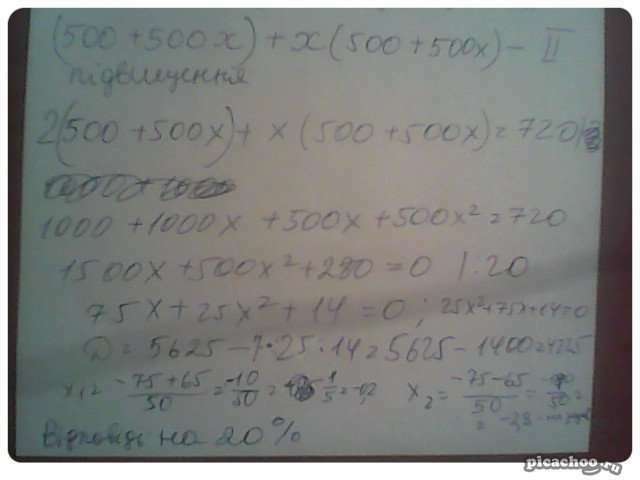 (500 + 500x) + x(500 + 500x) - II
підвищення
2(500 + 500x) + x(500 + 500x) = 720
1000 + 1000x + 500x + 500x² = 720
1500x + 500x² + 280 = 0 |:20
75x + 25x² + 14 = 0; 25x² + 75x + 14 = 0
D = 5625 - 4·25·14 = 5625 - 1400 = 4225
x₁ = (-75 + 65)/50 = -10/50 = -1/5 = -0,2 x₂ = (-75 - 65)/50 =
= -2,8
Відповідь на 20%
picachoo.ru